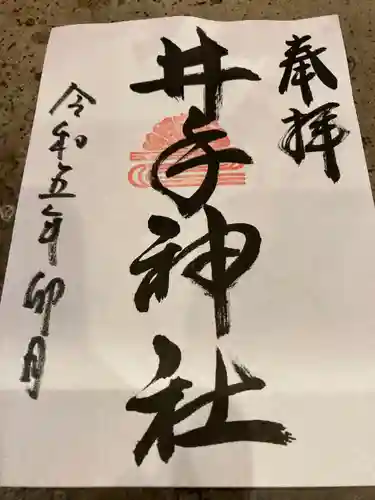 奉拝
井子神社
令和五年卯月